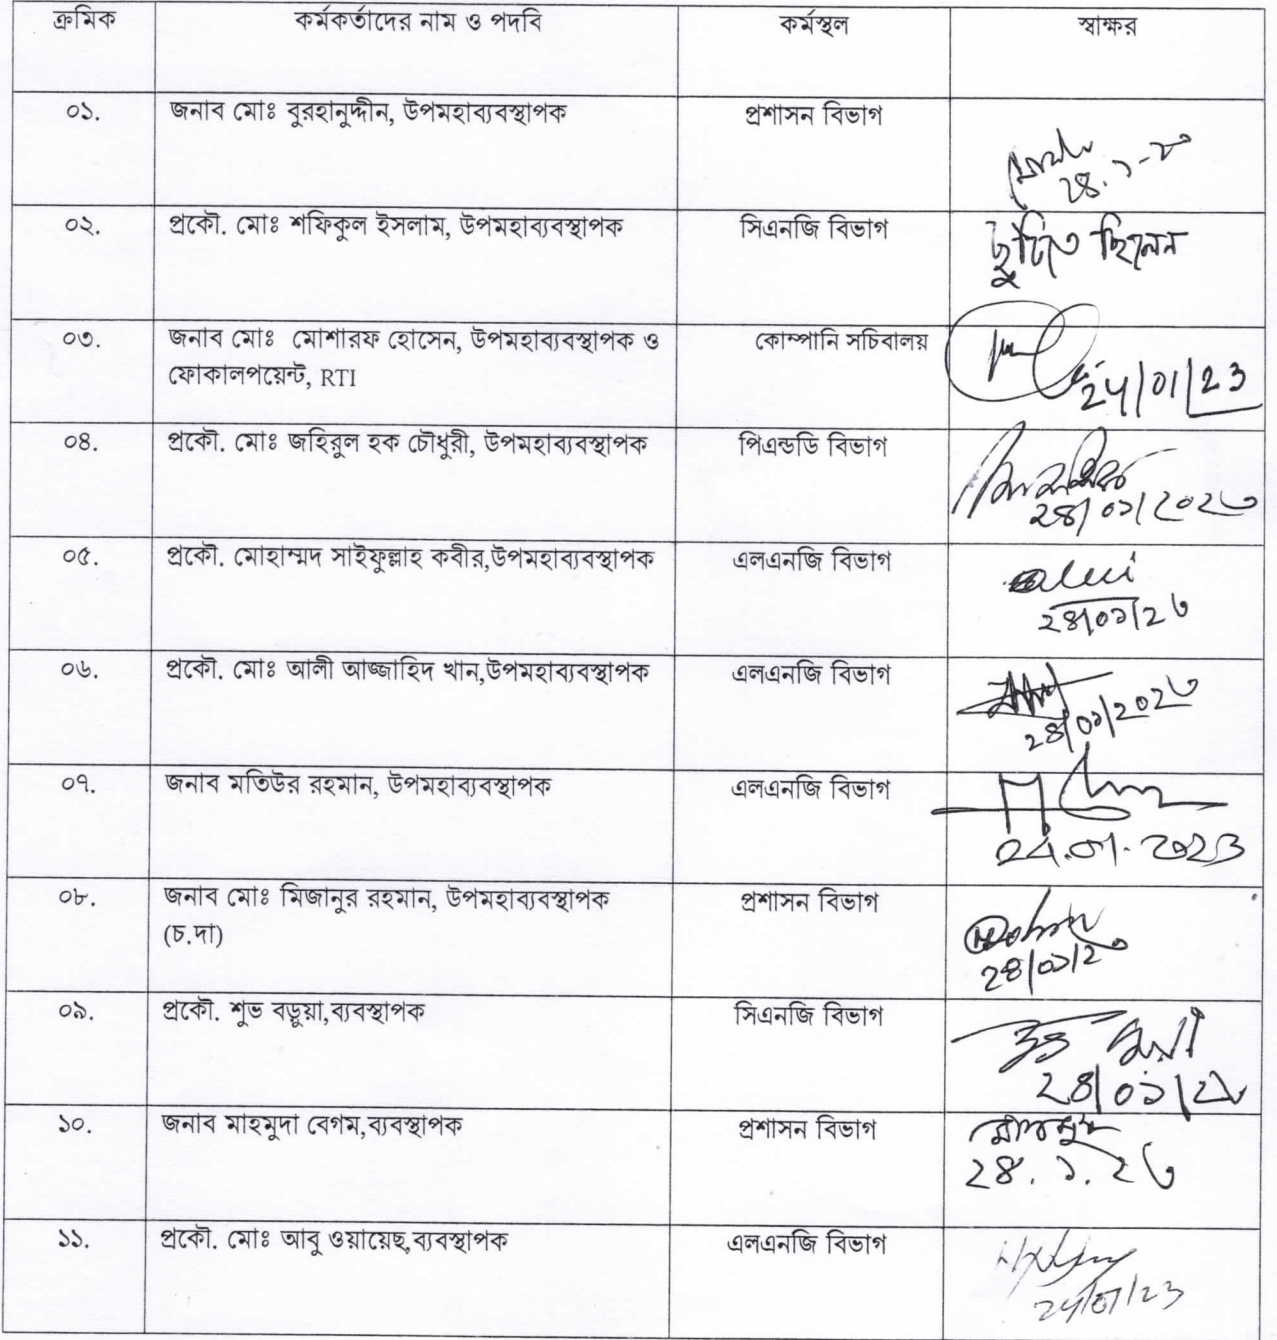 ক্রমিক কর্মকর্তাদের নাম ও পদবি কর্মস্থল স্বাক্ষর
০১. জনাব মোঃ বুরহানুদ্দীন, উপমহাব্যবস্থাপক প্রশাসন বিভাগ
০২. প্রকৌ. মোঃ শফিকুল ইসলাম, উপমহাব্যবস্থাপক সিএনজি বিভাগ ছুটিতে ছিলেন
০৩. জনাব মোঃ মোশারফ হোসেন, উপমহাব্যবস্থাপক ও কোম্পানি সচিবালয়
ফোকালপয়েন্ট, RTI 24/01/23
০৪. প্রকৌ. মোঃ জহিরুল হক চৌধুরী, উপমহাব্যবস্থাপক পিএন্ডডি বিভাগ
২৪/০১/২০২৩
০৫. প্রকৌ. মোহাম্মদ সাইফুল্লাহ কবীর,উপমহাব্যবস্থাপক এলএনজি বিভাগ
২৪/০১/২৩
০৬. প্রকৌ. মোঃ আলী আজ্জাহিদ খান,উপমহাব্যবস্থাপক এলএনজি বিভাগ
২৪/০১/২০২৩
০৭. জনাব মতিউর রহমান, উপমহাব্যবস্থাপক এলএনজি বিভাগ
24.01.2023
০৮. জনাব মোঃ মিজানুর রহমান, উপমহাব্যবস্থাপক প্রশাসন বিভাগ
(চ.দা)
২৪/০১/২৩
০৯. প্রকৌ. শুভ বড়ুয়া,ব্যবস্থাপক সিএনজি বিভাগ
২৪/০১/২৩
১০. জনাব মাহমুদা বেগম,ব্যবস্থাপক প্রশাসন বিভাগ
২৪.১.২৩
১১. প্রকৌ. মোঃ আবু ওয়ায়েছ,ব্যবস্থাপক এলএনজি বিভাগ
24/01/23